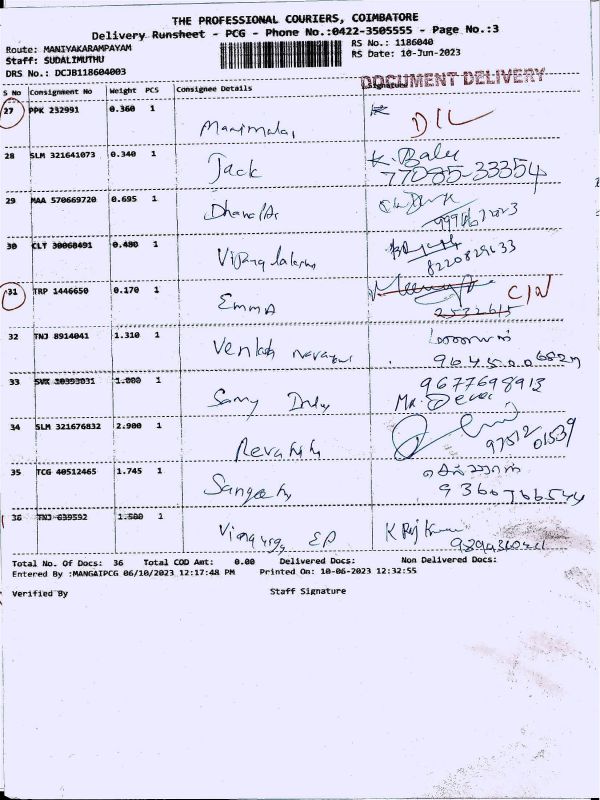 THE PROFESSIONAL COURIERS, COIMBATORE
Delivery Runsheet - PCG - Phone No.:0422-3505555 - Page No.:3
Route: MANIYAKARAMPAYAM RS No.: 1186040
Staff: SUDALIMUTHU RS Date: 10-Jun-2023
DRS No.: DCJB118604003
DOCUMENT DELIVERY
S No Consignment No Weight PCS Consignee Details Signature
27 PPK 232991 0.360 1 Manimala D/L
28 SLM 321641073 0.340 1 Jack K. Balu
77085-33354
29 MAA 570669720 0.695 1
30 CLT 30068491 0.480 1
8220829633
31 TRP 1446650 0.170 1 Emma C/N
2532615
32 TNJ 8914041 1.310 1 Venkat
33 SVK 30393031 1.000 1 Samy 9677698913
Mr. Deva
34 SLM 321676832 2.900 1 Revathi
97512 01539
35 TCG 40512465 1.745 1 Sangeetha
9360766544
36 TNJ 639592 1.500 1 K Raj Kumar
Total No. Of Docs: 36 Total COD Amt: 0.00 Delivered Docs: Non Delivered Docs:
Entered By :MANGAIPCG 06/10/2023 12:17:48 PM Printed On: 10-06-2023 12:32:55
Verified By Staff Signature